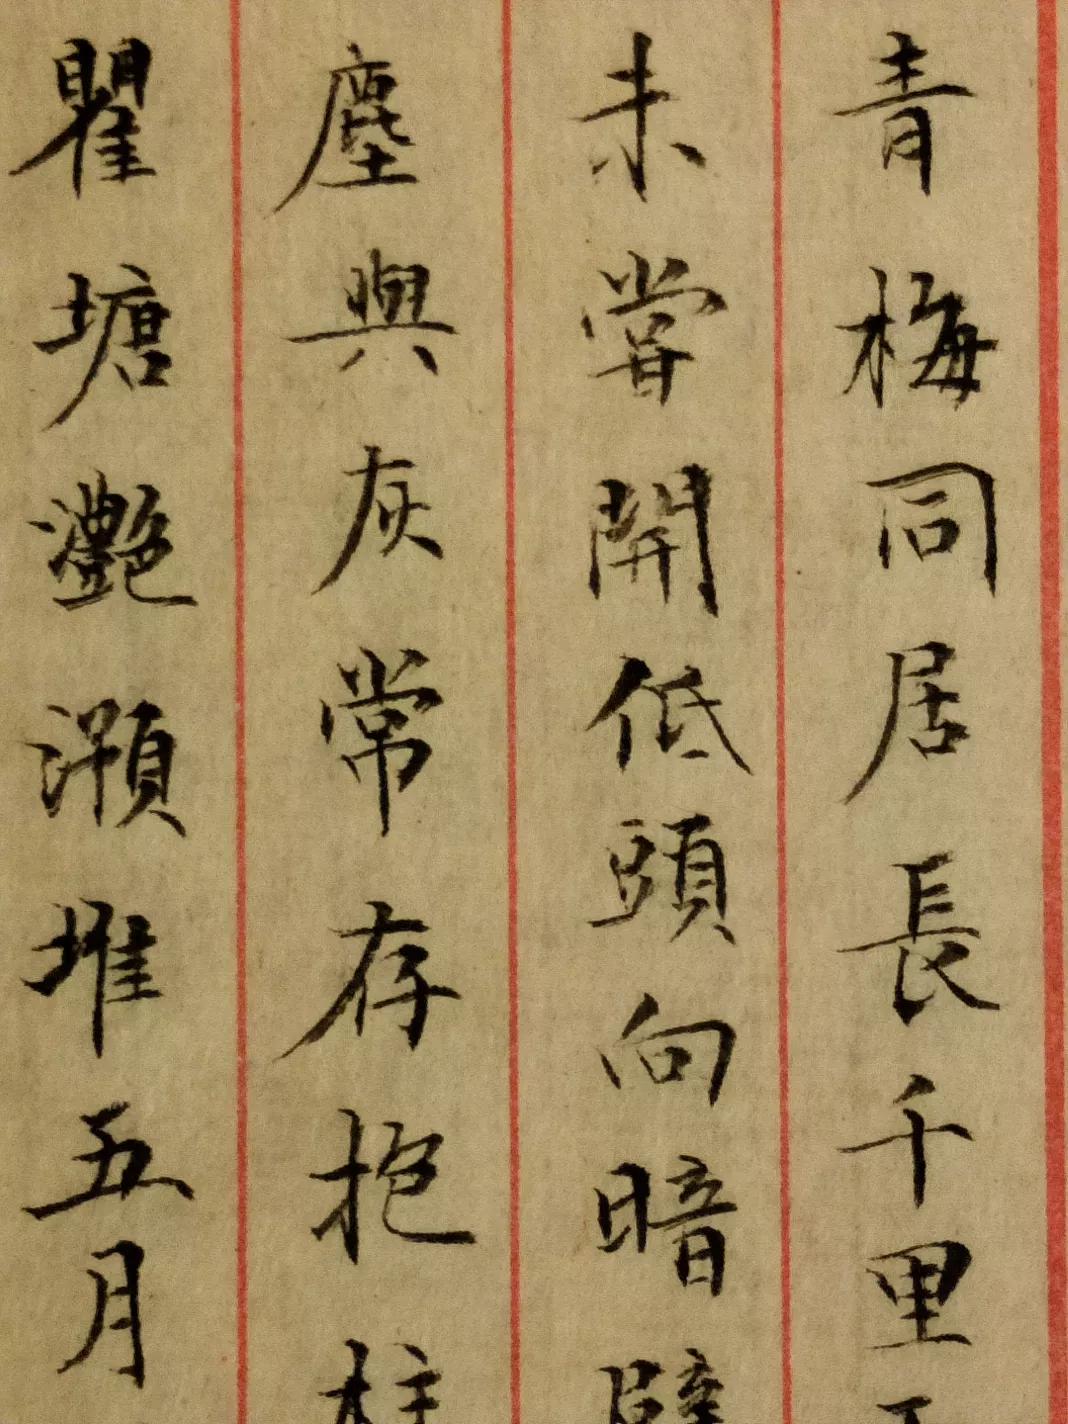 青梅同居長千里
未嘗開低頭向暗壁
塵與灰常存抱柱
瞿塘灧澦堆五月